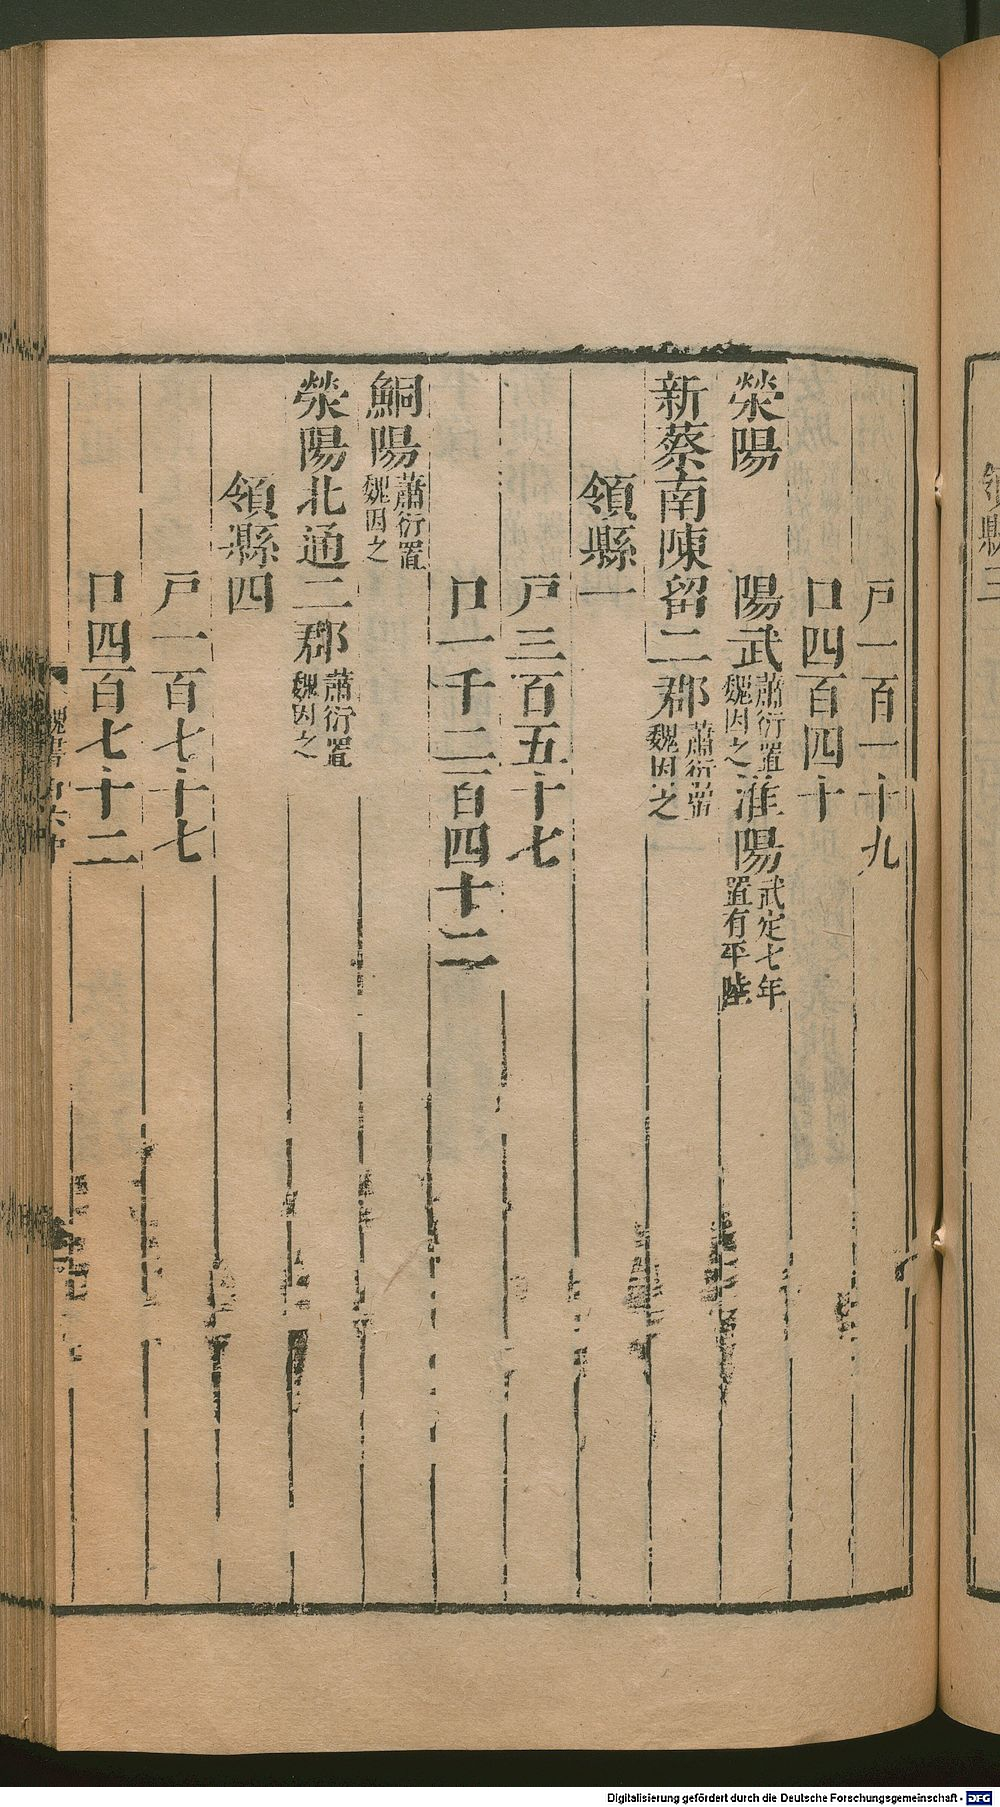 領縣三
戸一百一十九
口四百四十
滎陽 陽武蕭衍置魏因之 淮陽武定七年置有平陸
新蔡南陳留二郡蕭衍置魏因之
領縣一
戸三百五十七
口一千二百四十二
鮦陽蕭衍置魏因之
滎陽北通二郡蕭衍置魏因之
領縣四
戸一百七十七
口四百七十二
Digitalisierung gefördert durch die Deutsche Forschungsgemeinschaft - DFG